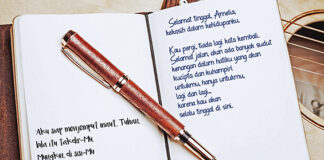 Aku siap menjemput maut, Tuhan,
bila itu Takdir-Mu
Mungkin di sisi-Mu
Selamat tinggal, Amelia,
kekasih dalam kehidupanku.
Kau pergi, tiada lagi kata kembali.
Selamat jalan, akan ada banyak sudut
kenangan dalam hatiku yang akan
kucipta dan kuhampiri
untukmu, hanya untukmu,
lagi dan lagi...
karena kau akan
selalu tinggal di sini.